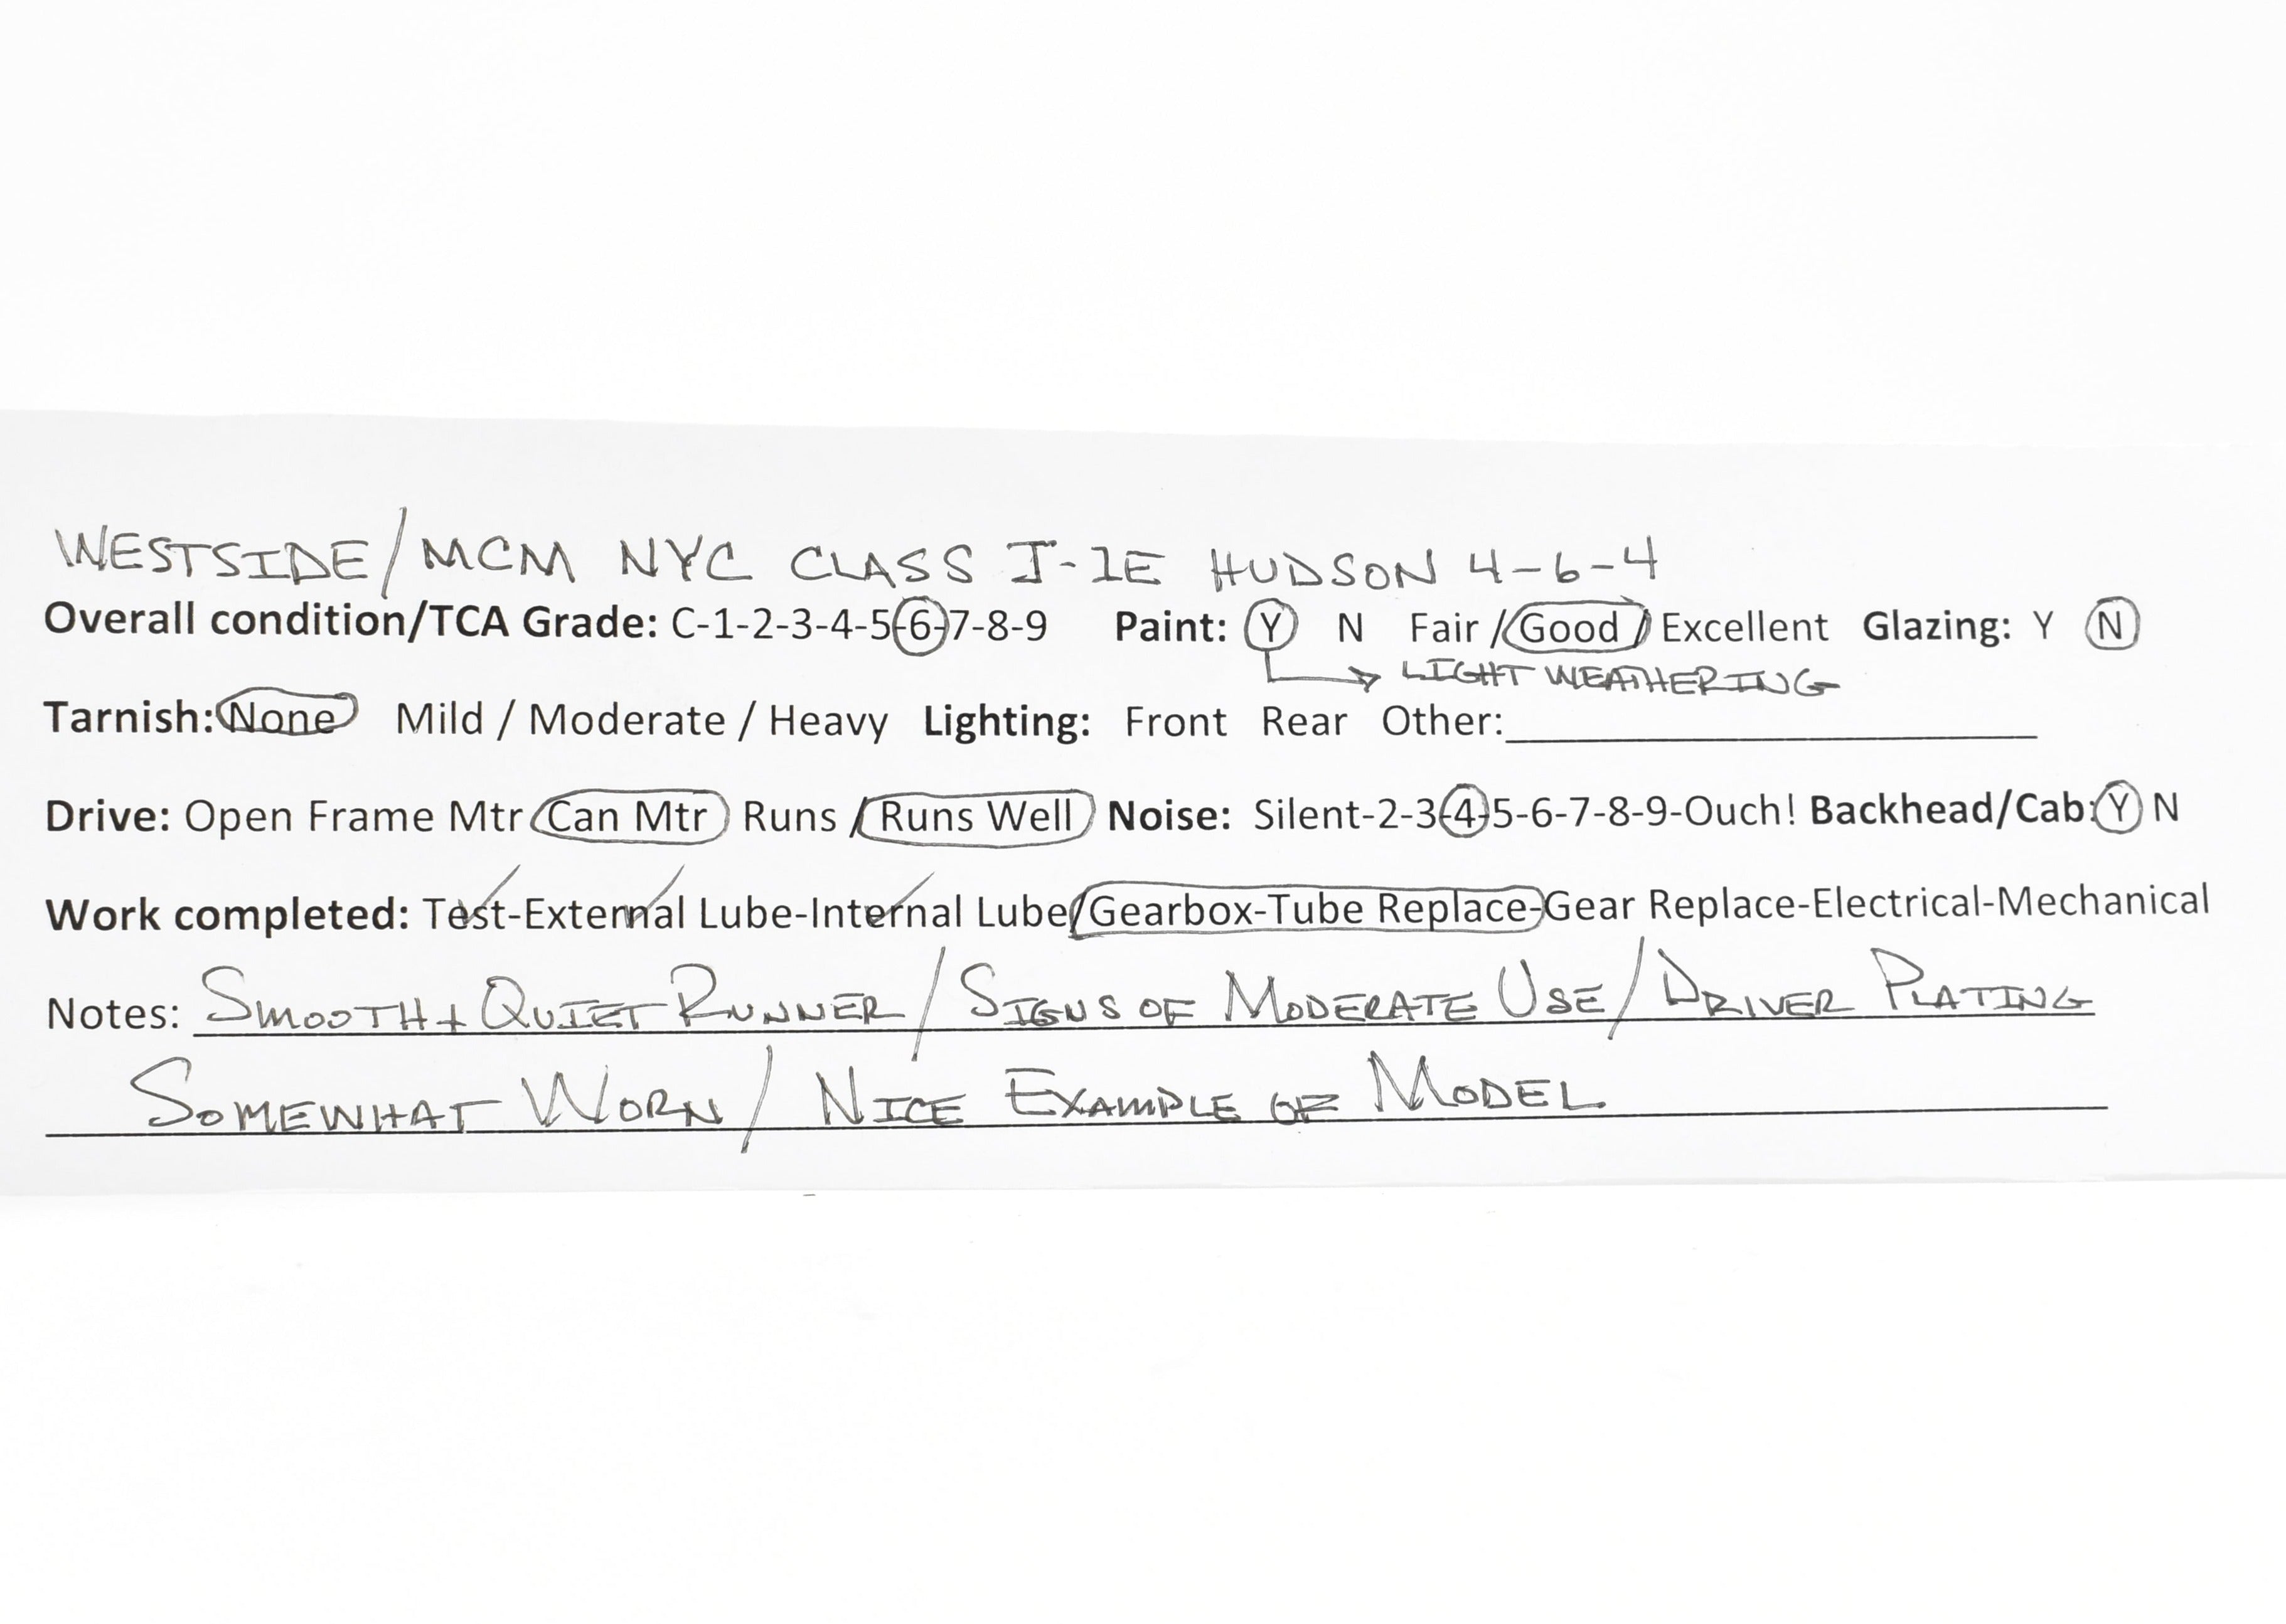 WESTSIDE/MCM NYC CLASS J-1E HUDSON 4-6-4
Overall condition/TCA Grade: C-1-2-3-4-5-6-7-8-9 Paint: Y N Fair / Good / Excellent Glazing: Y N
LIGHT WEATHERING
Tarnish: None Mild / Moderate / Heavy Lighting: Front Rear Other:
Drive: Open Frame Mtr Can Mtr Runs / Runs Well Noise: Silent-2-3-4-5-6-7-8-9-Ouch! Backhead/Cab: Y N
Work completed: Test-External Lube-Internal Lube/Gearbox-Tube Replace-Gear Replace-Electrical-Mechanical
Notes: SMOOTH + QUIET RUNNER / SIGNS OF MODERATE USE / DRIVER PLATING
SOMEWHAT WORN / NICE EXAMPLE OF MODEL